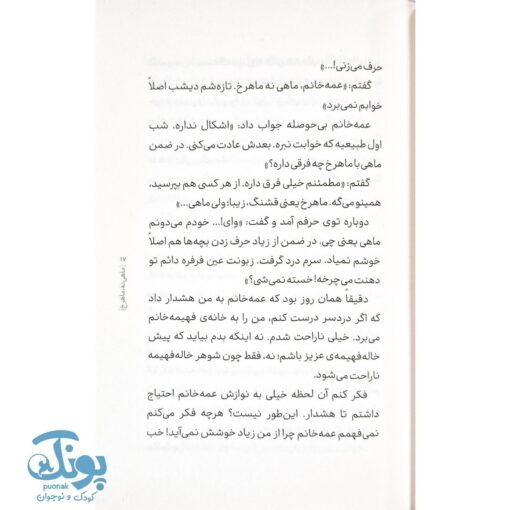 حرف می‌زنی!...»
گفتم: «عمه‌خانم، ماهی نه ماهرخ. تازه‌شم دیشب اصلاً
خوابم نمی‌برد»
عمه‌خانم بی‌حوصله جواب داد: «اشکال نداره. شب
اول طبیعیه که خوابت نبره. بعدش عادت می‌کنی. در ضمن
ماهی با ماهرخ چه فرقی داره؟»
گفتم: «مطمئنم خیلی فرق داره. از هر کسی هم بپرسید،
همینو می‌گه. ماهرخ یعنی قشنگ، زیبا؛ ولی ماهی...»
دوباره توی حرفم آمد و گفت: «وای!... خودم می‌دونم
ماهی یعنی چی. در ضمن از زیاد حرف زدن بچه‌ها هم اصلاً
خوشم نمیاد. سرم درد گرفت. زبونت عین فرفره دائم تو
دهنت می‌چرخه! خسته نمی‌شی؟»
دقیقاً همان روز بود که عمه‌خانم به من هشدار داد
که اگر دردسر درست کنم، من را به خانه‌ی فهیمه‌خانم
می‌برد. خیلی ناراحت شدم. نه اینکه بدم بیاید که پیش
خاله‌فهیمه‌ی عزیز باشم؛ نه، فقط چون شوهر خاله‌فهیمه
ناراحت می‌شود.
فکر کنم آن لحظه خیلی به نوازش عمه‌خانم احتیاج
داشتم تا هشدار. این‌طور نیست؟ هرچه فکر می‌کنم
نمی‌فهمم عمه‌خانم چرا از من زیاد خوشش نمی‌آید! خب
ماهی نه، ماهرخ!
پونک
puonak
کودک و نوجوان